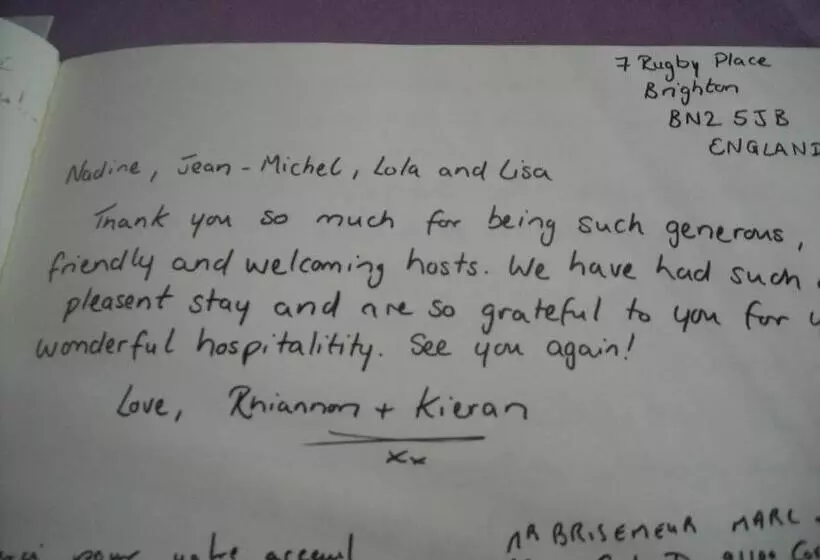 7 Rugby Place
Brighton
BN2 5JB
ENGLAND
Nadine, Jean-Michel, Lola and Lisa
Thank you so much for being such generous,
friendly and welcoming hosts. We have had such
pleasent stay and are so grateful to you for
wonderful hospitalitity. See you again!
Love, Rhiannon + Kieran
xx
MR BRISEMEUR MARC
pour votre accueil